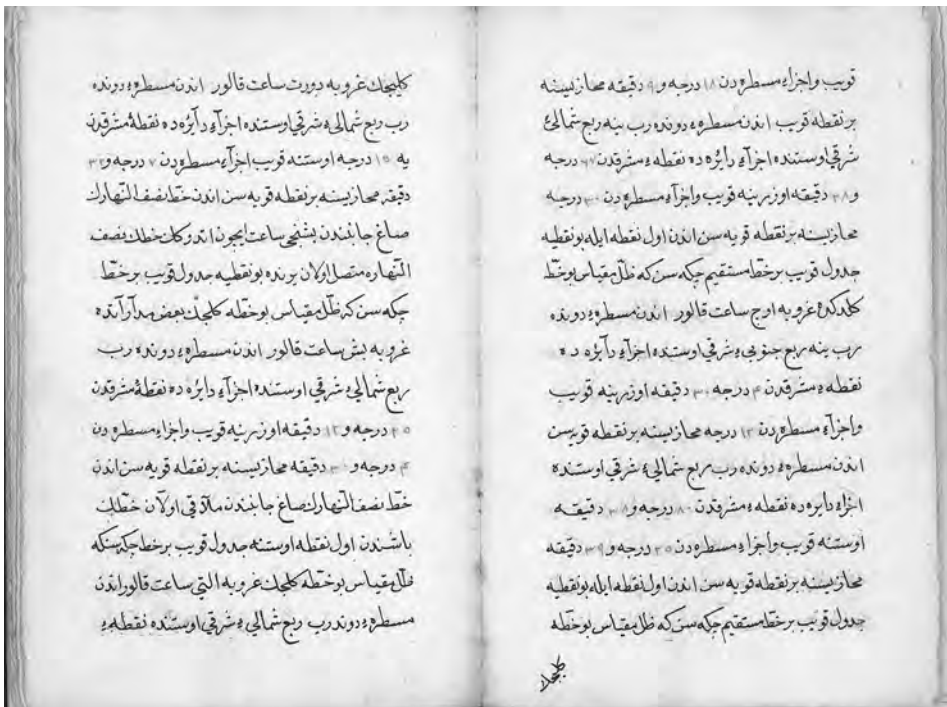 قویب واجزاء مسطره‌دن ١٨ درجه و ٩ دقیقه محازیسینه
بر نقطه قویب اندن مسطره‌ء دونده‌رب ینه ربع شمالئ
شرقی اوستنده اجزآء دایره‌ده نقطه‌ء مشرقدن ٦٧ درجه
و ٣٨ دقیقه اوزرینه قویب واجرآء مسطره‌دن ٣٠ درجه
محازیسینه بر نقطه قویه سن اندن اول نقطه ایله بو نقطیه
جدول قویب بر خط مستقیم چکه سن که ظل مقیاس بو خطه
کلدکده غروبه اوج ساعت قالور اندن مسطره‌ء دونده
رب ینه ربع جنوبیء شرقی اوستنده اجزآء دآیره ده
نقطه‌ء مشرقدن ۴ درجه ٣٠ دقیقه اوزرینه قویب
واجزآء مسطره‌دن ١٢ درجه محازیسینه بر نقطه قویه سن
اندن مسطره‌ء دونده‌رب ربع شمالیء شرقی اوستنده
اجزاء دایره‌ده نقطه‌ء مشرقدن ٨٠ درجه و ٣٨ دقیقه
اوستنه قویب واجزاء مسطره‌دن ٣٥ درجه و ٣٩ دقیقه
محازیسینه بر نقطه قویه سن اندن اول نقطه ایله بو نقطیه
جدول قویب بر خط مستقیم چکه سن که ظل مقیاس بو خطه
کلیجك
کلیجك غروبه دورت ساعت قالور اندن مسطره‌ء دونده
رب ربع شمالیء شرقی اوستنده اجزآء دآیره‌ده نقطۀ مشرقدن
یه ١٥ درجه اوستنه قویب اجزآء مسطره‌دن ٧ درجه و ٣٢
دقیقه محازیسینه بر نقطه قویه سن اندن خط نصف النهارك
صاغ جانبندن بشنجی ساعت ایچون اندوكك خطك نصف
النهاره متصل اولان یرنده بو نقطیه جدول قویب بر خط
چکه سن که ظل مقیاس بو خطه کلیجك بعض مدارآتده
غروبه بش ساعت قالور اندن مسطره‌ء دونده رب
ربع شمالیء شرقی اوستنده اجزآء دایره ده نقطۀ مشرقدن
٢٥ درجه و ١٢ دقیقه اوزرینه قویب واجزاء مسطره دن
۴ درجه و ٣٠ دقیقه محازیسینه بر نقطه قویه سن اندن
خط نصف النهارك صاغ جانبندن ملاقی اولان خطك
باشندن اول نقطه اوستنه جدول قویب بر خط چکه سنکه
ظل مقیاس بو خطه کلیجك غروبه التی ساعت قالور اندن
مسطره‌ء دوندرب ربع شمالیء شرقی اوستنده نقطه‌ء